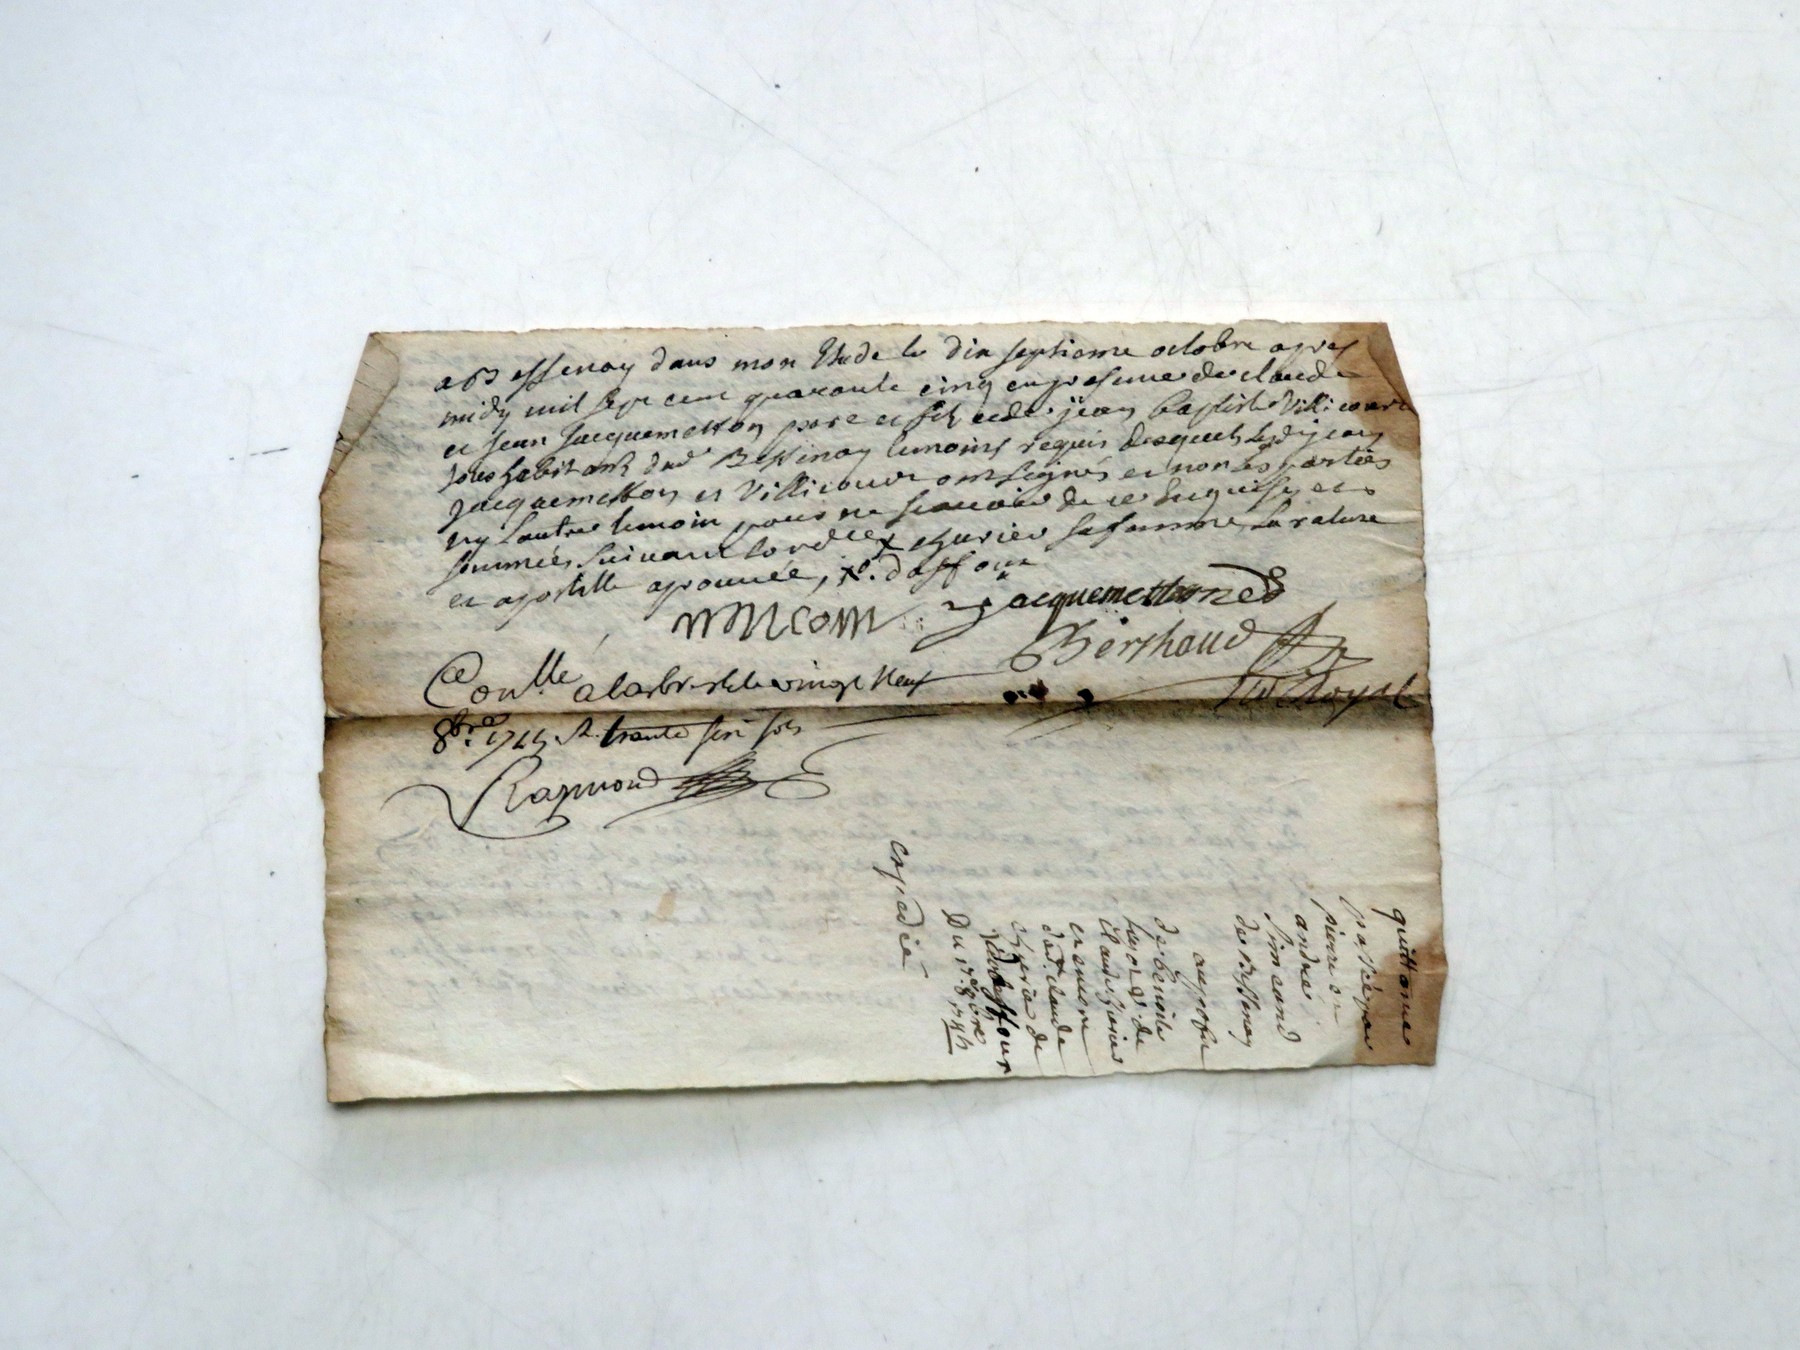 a Bessenay dans mon Etude le dix septieme octobre apres
midy mil sept cent quarante cinq en presence de claude
et jean Jacquemetton pere et fils et de jean baptiste Villicourt
tous habitans dud Bessenay temoins requis desquels led jean
Jacquemetton et Villicour ont signés et non les parties
ny l'autre temoin pour ne scavoir de ce Enquis et
sommés suivant lord x chuzier sa femme, la rature
et apostille aprouvée, x. daffour
jacquemetton
Berthaud
Nre Royal
Con.llé a larbresle le vingt neuf
8bre 1745 R. trente six sols
Raymond
quittance
passée par
pierre
andré
simeand
de Bessenay
au profit
de benoite
de
Claude
et encore
dud. Claude
de
daffour
Du 17e 8bre 1745
expedié